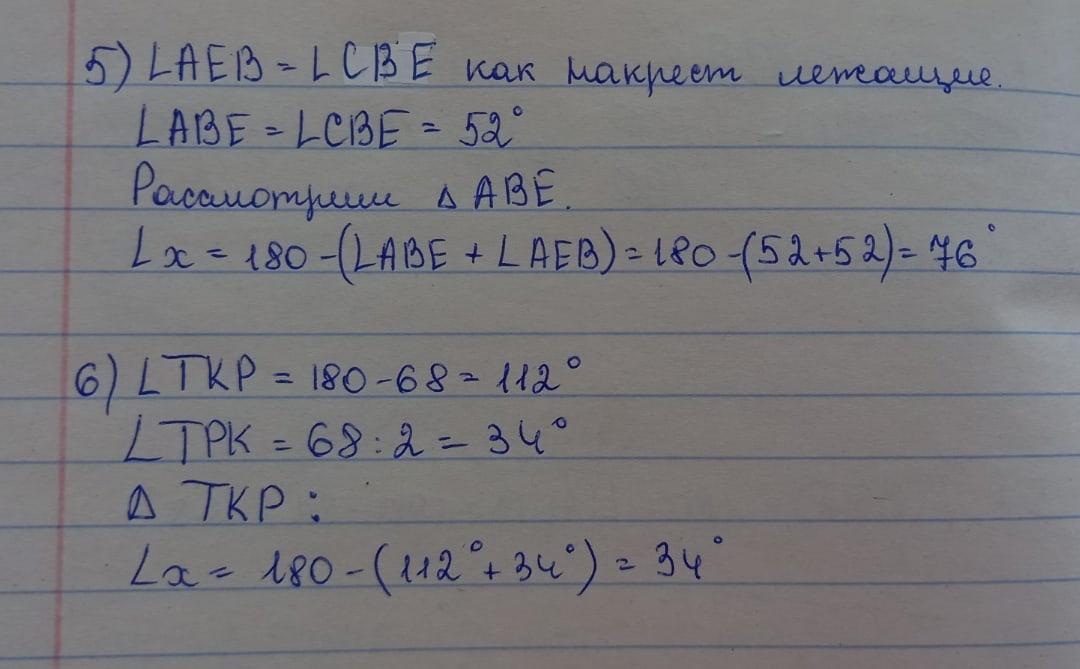 5) ∠AEB = ∠CBE как накрест лежащие.
∠ABE = ∠CBE = 52°
Рассмотрим △ ABE.
∠x = 180 - (∠ABE + ∠AEB) = 180 - (52+52) = 76°
6) ∠TKP = 180 - 68 = 112°
∠TPK = 68 : 2 = 34°
△ TKP :
∠x = 180 - (112° + 34°) = 34°